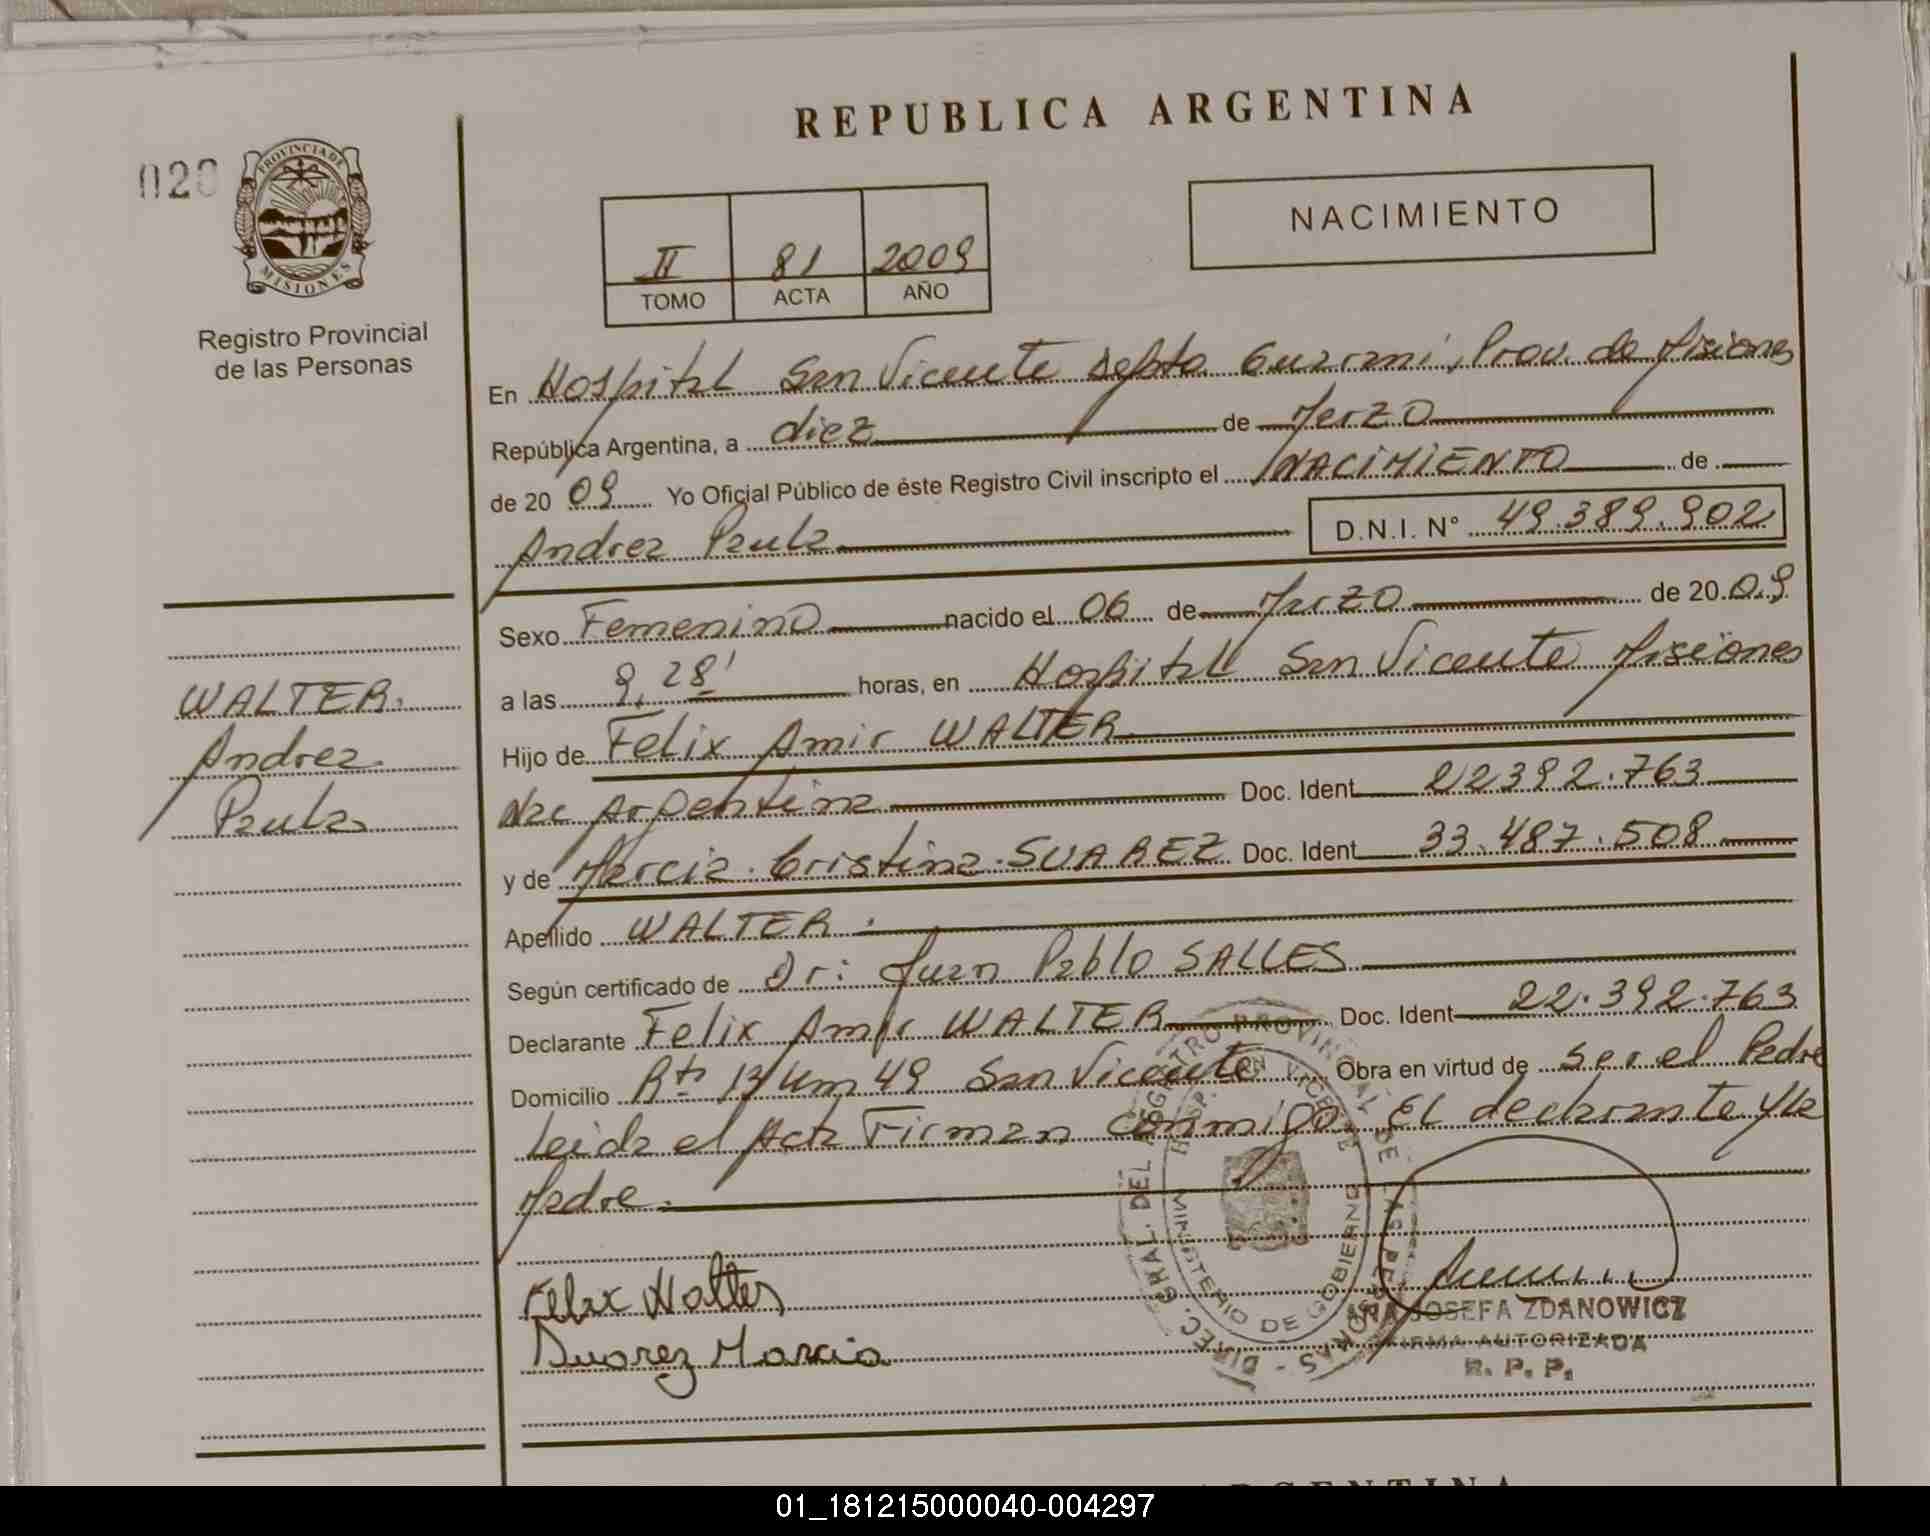 REPUBLICA ARGENTINA
020
PROVINCIA DE
MISIONES
Registro Provincial
de las Personas
II 81 2009
TOMO ACTA AÑO
NACIMIENTO
En Hospital San Vicente Depto Guarani, Prov. de Misiones
República Argentina, a diez de Marzo
de 20 09 Yo Oficial Público de éste Registro Civil inscripto el NACIMIENTO de
Andrea Paula D.N.I. N° 49.389.902
Sexo Femenino nacido el 06 de Marzo de 20 09
a las 9,28' horas, en Hospital San Vicente Misiones
Hijo de Felix Amir WALTER
Nac Argentina Doc. Ident 22392.763
y de Marcia Cristina SUAREZ Doc. Ident 33.487.508
Apellido WALTER.
Según certificado de Dr: Juan Pablo SALLES
Declarante Felix Amir WALTER Doc. Ident 22.392.763
Domicilio Rta 14 Km 49 San Vicente Obra en virtud de ser el Padre
Leida el Acta Firman Conmigo El declarante y la
Madre.
WALTER.
Andrea
Paula
Felix Walter
Suarez Marcia
DIREC. GRAL. DEL REGISTRO PROVINCIAL DE LAS PERSONAS -
HOSP. SAN VICENTE
MINISTERIO DE GOBIERNO
JOSEFA ZDANOWICZ
FIRMA AUTORIZADA
R. P. P.
ARGENTINA
01_181215000040-004297